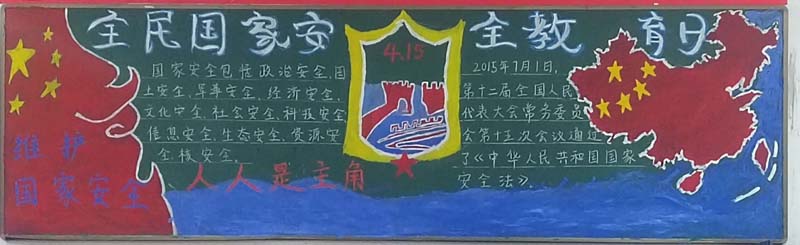 全民国家安全教育日
4.15
国家安全包括政治安全、国
土安全、军事安全、经济安全、
文化安全、社会安全、科技安全
信息安全、生态安全、资源安
全、核安全、
2015年7月1日,
第十二届全国人民
代表大会常务委员
会第十五次会议通过
了《中华人民共和国国家
安全法》.
维护
国家安全、人人是主角